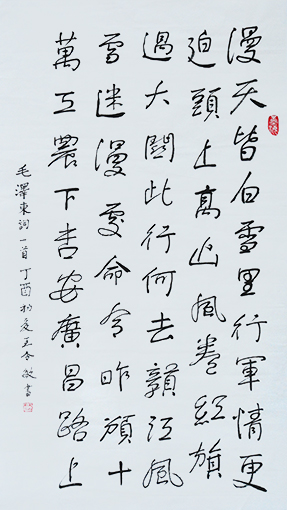 漫天皆白雪里行軍情更
迫頭上高山風卷紅旗
過大關此行何去贛江風
雪迷漫處命令昨頒十
萬工農下吉安廣昌路上
毛澤東詞一首丁酉初夏王敏書